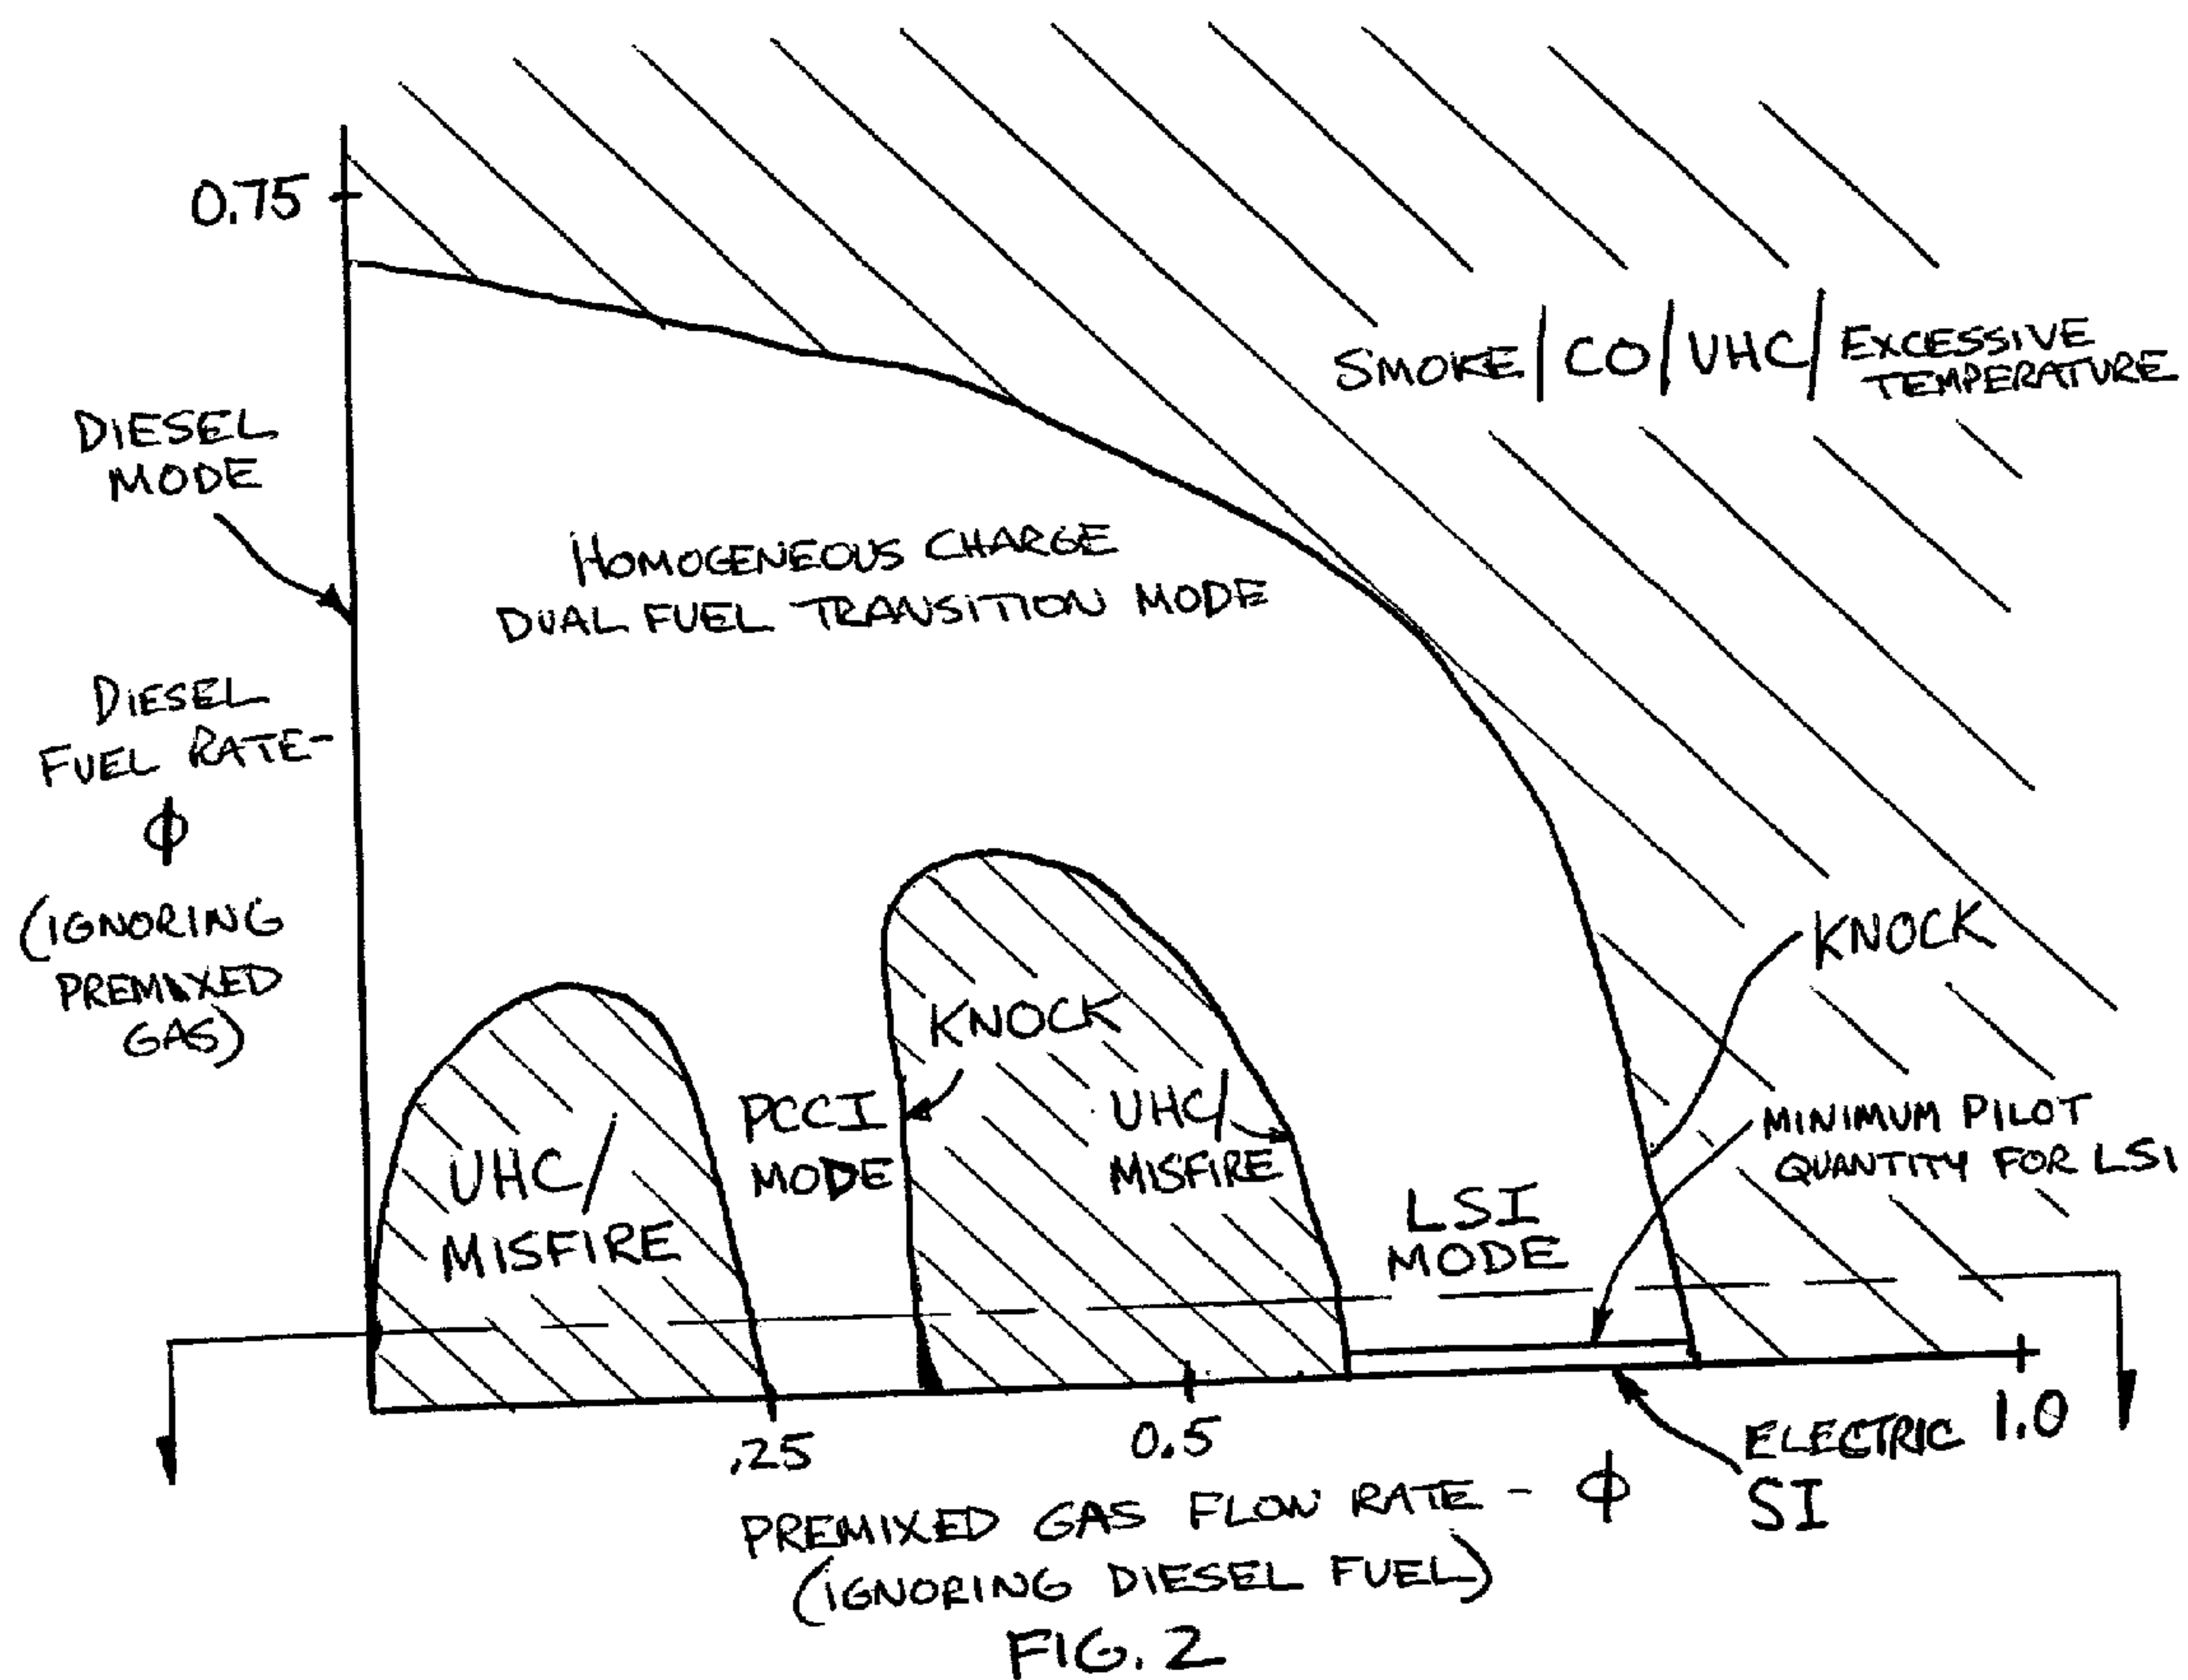 0.75
SMOKE/CO/UHC/EXCESSIVE
TEMPERATURE
DIESEL
MODE
HOMOGENEOUS CHARGE
DUAL FUEL TRANSITION MODE
DIESEL
FUEL RATE-
ϕ
(IGNORING
PREMIXED
GAS)
KNOCK
KNOCK
PCCI
MODE
UHC/
MISFIRE
UHC/
MISFIRE
MINIMUM PILOT
QUANTITY FOR LSI
LSI
MODE
.25
0.5
1.0
ELECTRIC
SI
PREMIXED GAS FLOW RATE - ϕ
(IGNORING DIESEL FUEL)
FIG. 2